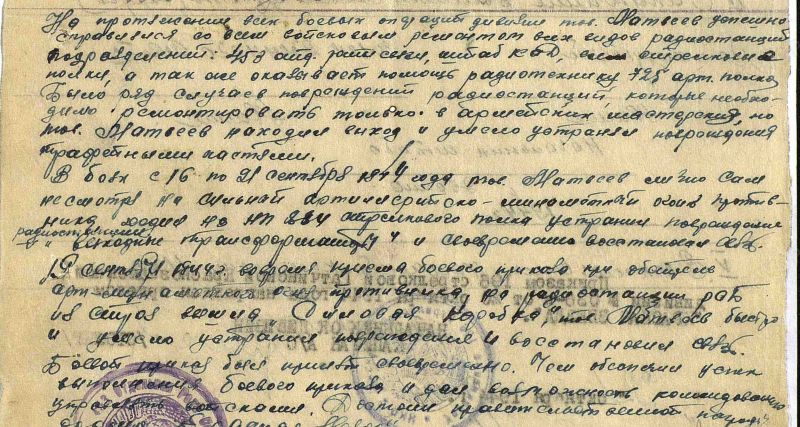 На протяжении всех боевых операций дивизии тов. Матвеев успешно
справился со всем войсковым ремонтом всех видов радиостанций
подразделений: 453 отд. роты связи, штаб КАД, стрелковые
полки, а так же оказывает помощь радиотехнику 725 арт. полка
Было ряд случаев повреждений радиостанций, которые необхо-
димо ремонтировать только в армейских мастерских но
тов. Матвеев находил выход и умело устранял повреждения
трофейными частями.
В боях с 16 по 21 сентября 1944 года тов. Матвеев лично сам
несмотря на сильный артиллерийско-минометный огонь против-
ника ходил на НП 884 стрелкового полка устранил повреждение
радиостанции
"выходные трансформаторы" и своевременно восстановил связь.
19 сентября 1944 г. вовремя приема боевого приказа при обстреле
арт-минометным огнем противника, на радиостанции РАБ
из строя вышла "Силовая коробка", тов. Матвеев быстро
и умело устранил повреждение и восстановил связь.
Боевой приказ был принят своевременно. Чем обеспечил успех
выполнения боевого приказа и дал возможность командованию
управлять войсками. Достоин правительственной награды